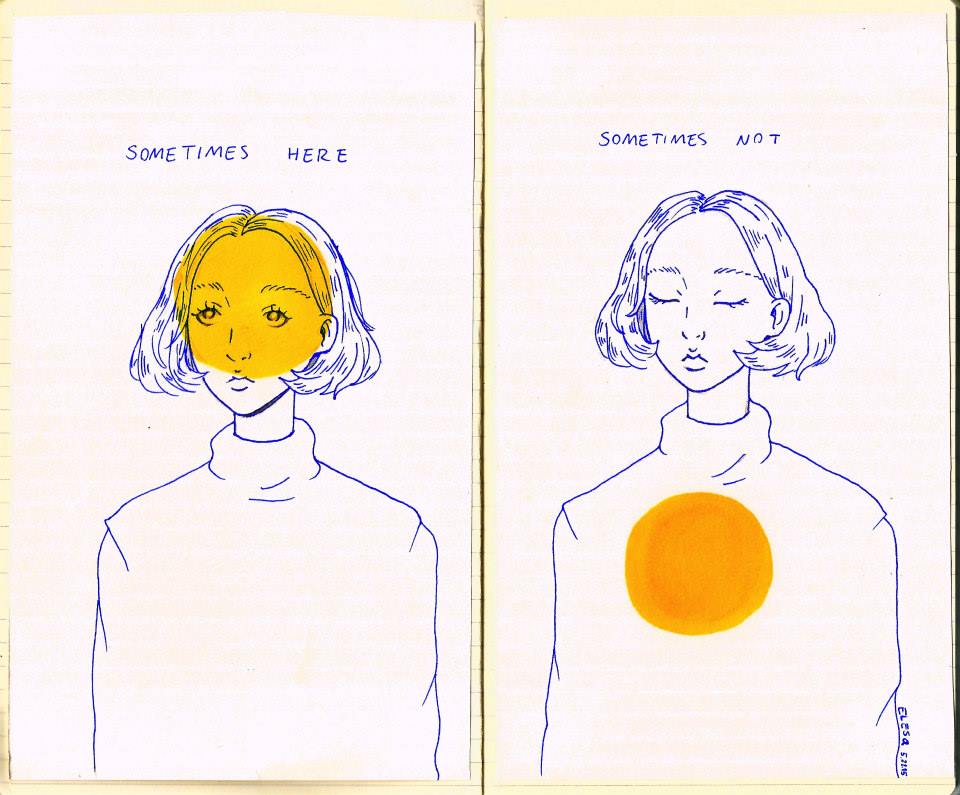 SOMETIMES HERE
SOMETIMES NOT
ELESQ